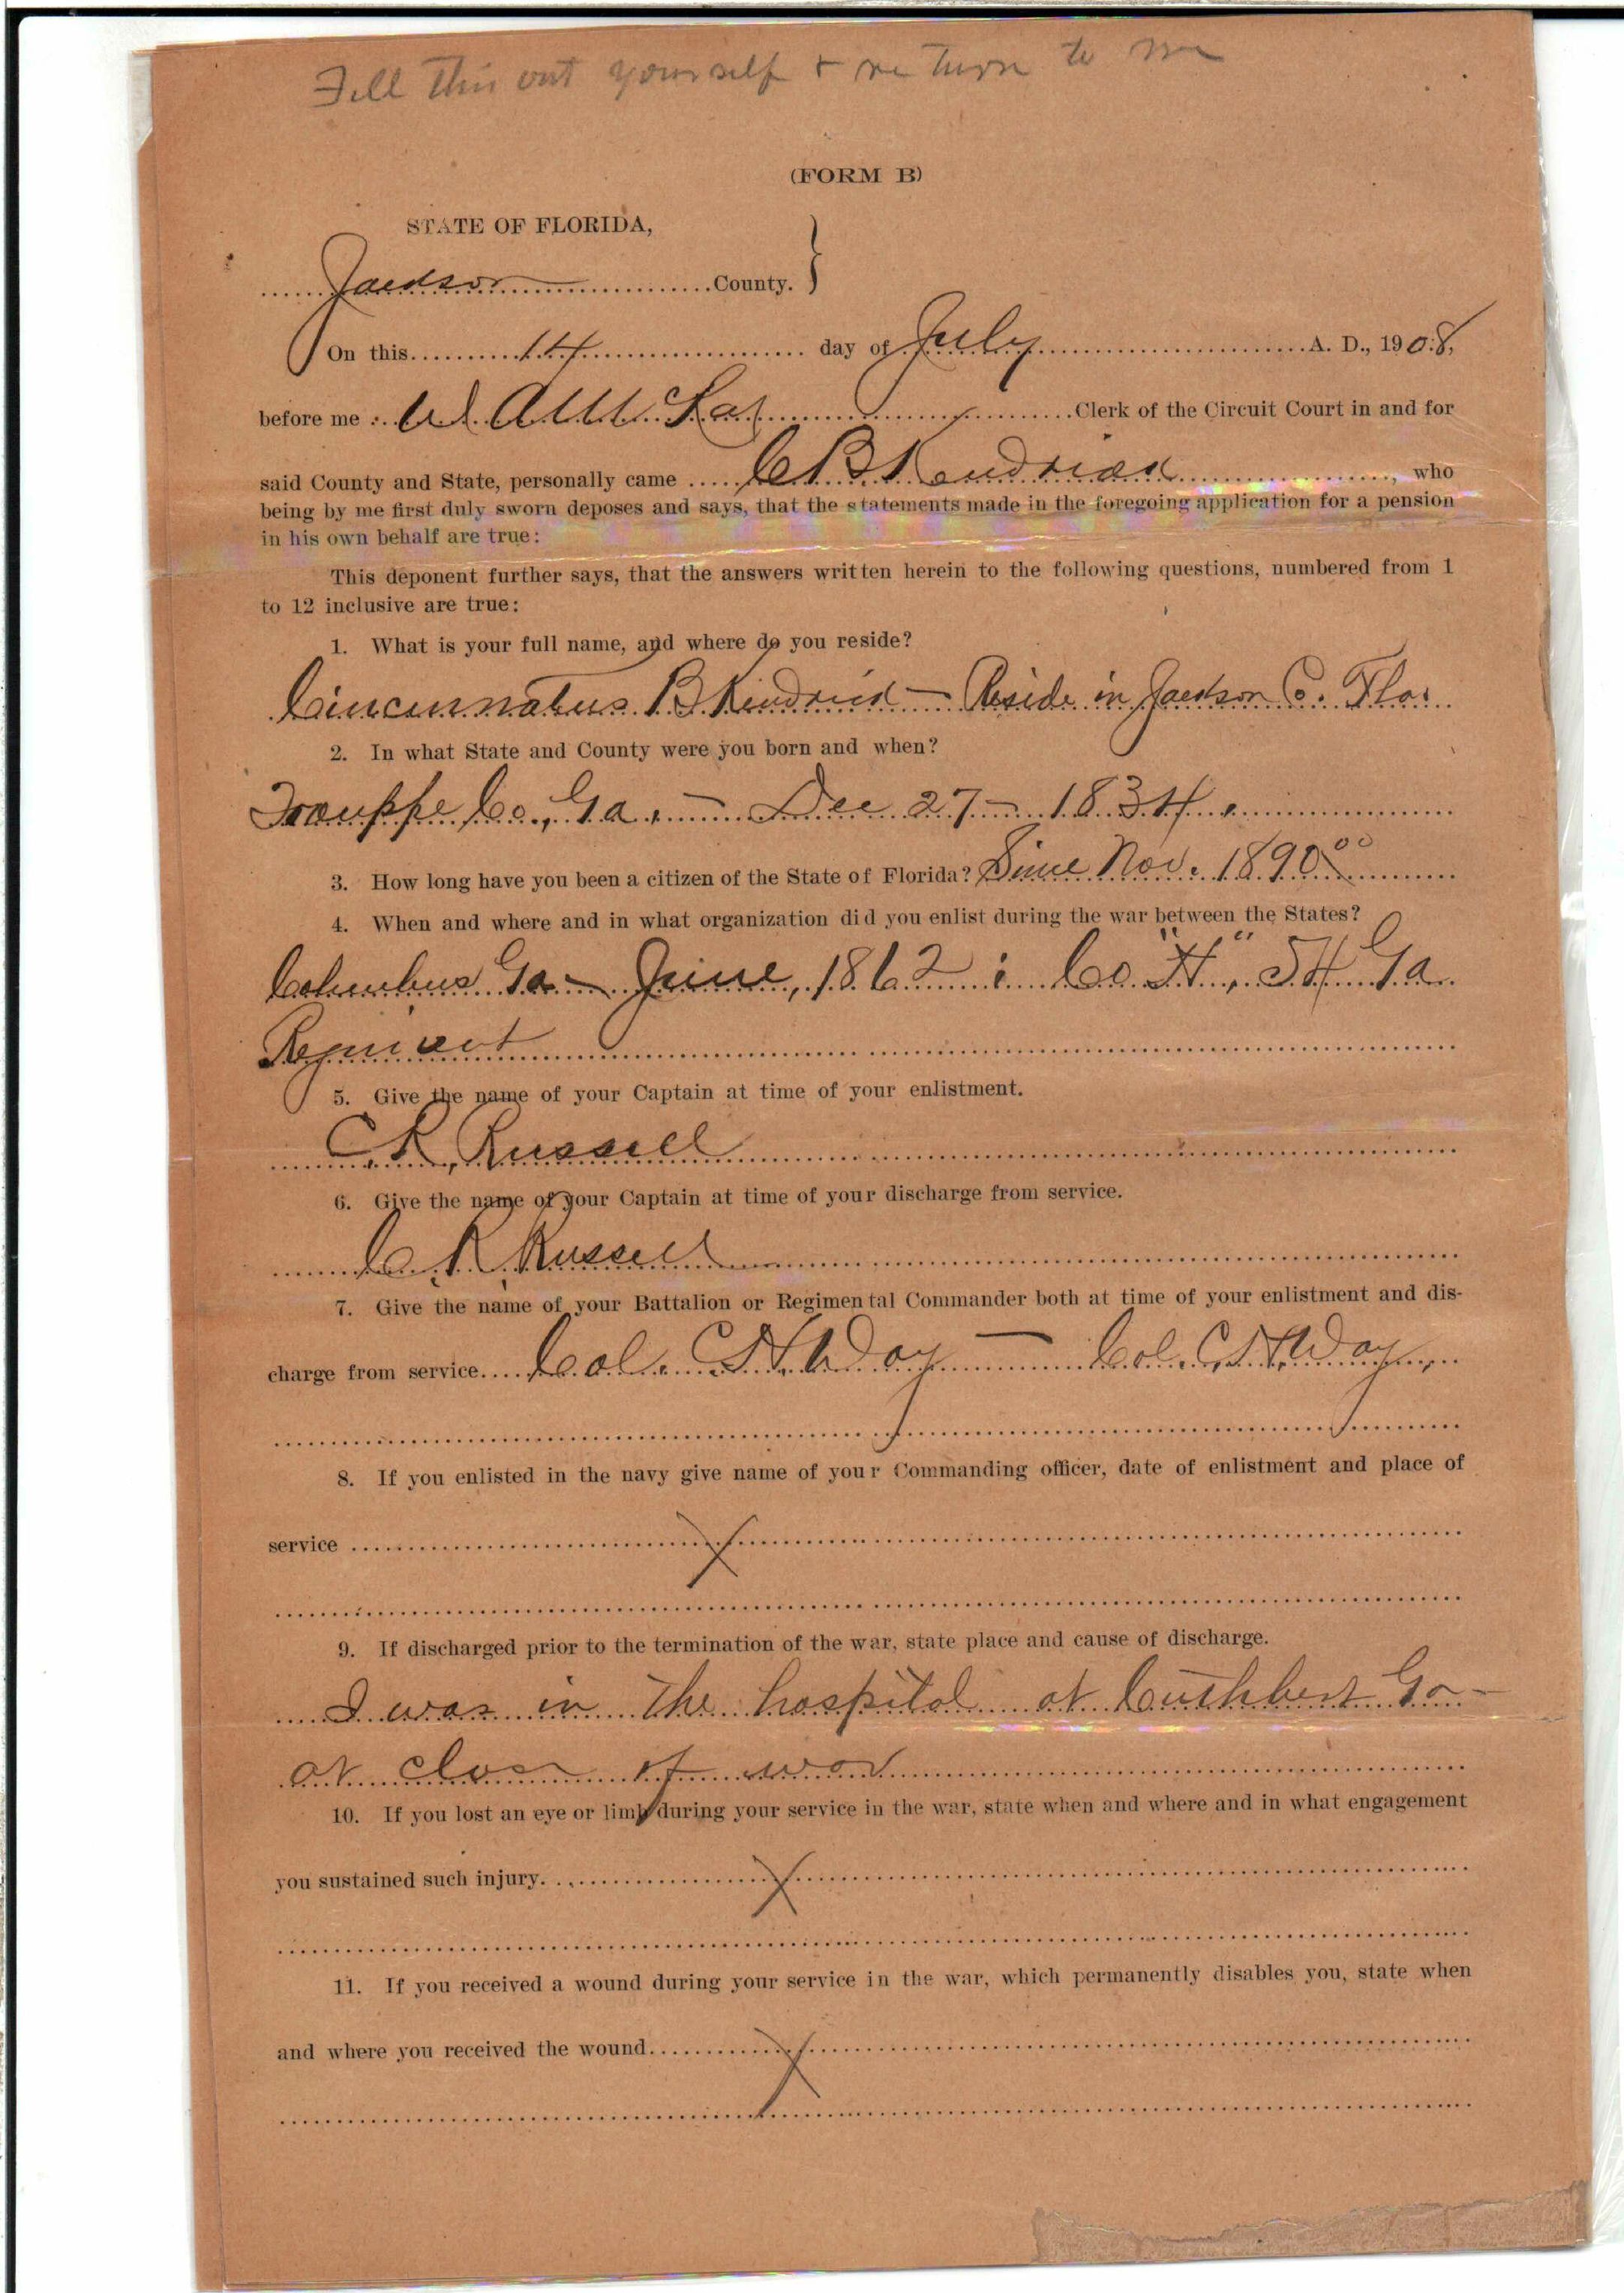 Fill this out yourself & return to me
(FORM B)
STATE OF FLORIDA,
Jackson County. }
On this 14 day of July A. D., 1908,
before me W. A. Clerk of the Circuit Court in and for
said County and State, personally came C B Kendrick, who
being by me first duly sworn deposes and says, that the statements made in the foregoing application for a pension
in his own behalf are true:
This deponent further says, that the answers written herein to the following questions, numbered from 1
to 12 inclusive are true:
1. What is your full name, and where do you reside?
Cincinnatus B Kendrick — Reside in Jackson Co. Fla.
2. In what State and County were you born and when?
Trouppe Co., Ga. — Dec 27 — 1834.
3. How long have you been a citizen of the State of Florida? Since Nov. 1890
4. When and where and in what organization did you enlist during the war between the States?
Columbus Ga — June, 1862 : Co. "H", 54 Ga
Regiment
5. Give the name of your Captain at time of your enlistment.
C. R. Russell
6. Give the name of your Captain at time of your discharge from service.
C. R. Russell
7. Give the name of your Battalion or Regimental Commander both at time of your enlistment and dis-
charge from service. Col. C. H. Way — Col. C. H. Way,
8. If you enlisted in the navy give name of your Commanding officer, date of enlistment and place of
service X
9. If discharged prior to the termination of the war, state place and cause of discharge.
I was in the hospital at Cuthbert Ga —
at close of war
10. If you lost an eye or limb during your service in the war, state when and where and in what engagement
you sustained such injury. X
11. If you received a wound during your service in the war, which permanently disables you, state when
and where you received the wound. X